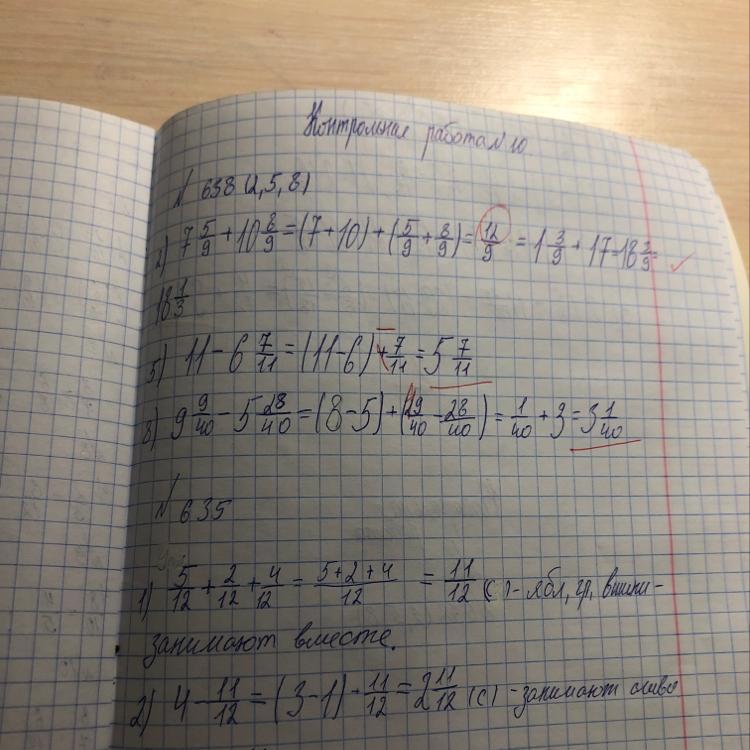 Контрольная работа №10.
№ 638 (2,5,8)
2) 7 5/9 + 10 8/9 = (7+10) + (5/9 + 8/9) = 12/9 = 1 3/9 + 17 = 18 3/9 =
18 1/3
5) 11 - 6 7/11 = (11-6) + 7/11 = 5 7/11
8) 9 9/40 - 5 28/40 = (8-5) + (29/40 - 28/40) = 1/40 + 3 = 3 1/40
№ 635
1) 5/12 + 2/12 + 4/12 = (5+2+4)/12 = 11/12 (с) - ябл, гр, вишни -
занимают вместе.
2) 4 - 11/12 = (3-1) - 11/12 = 2 11/12 (с) - занимают слива